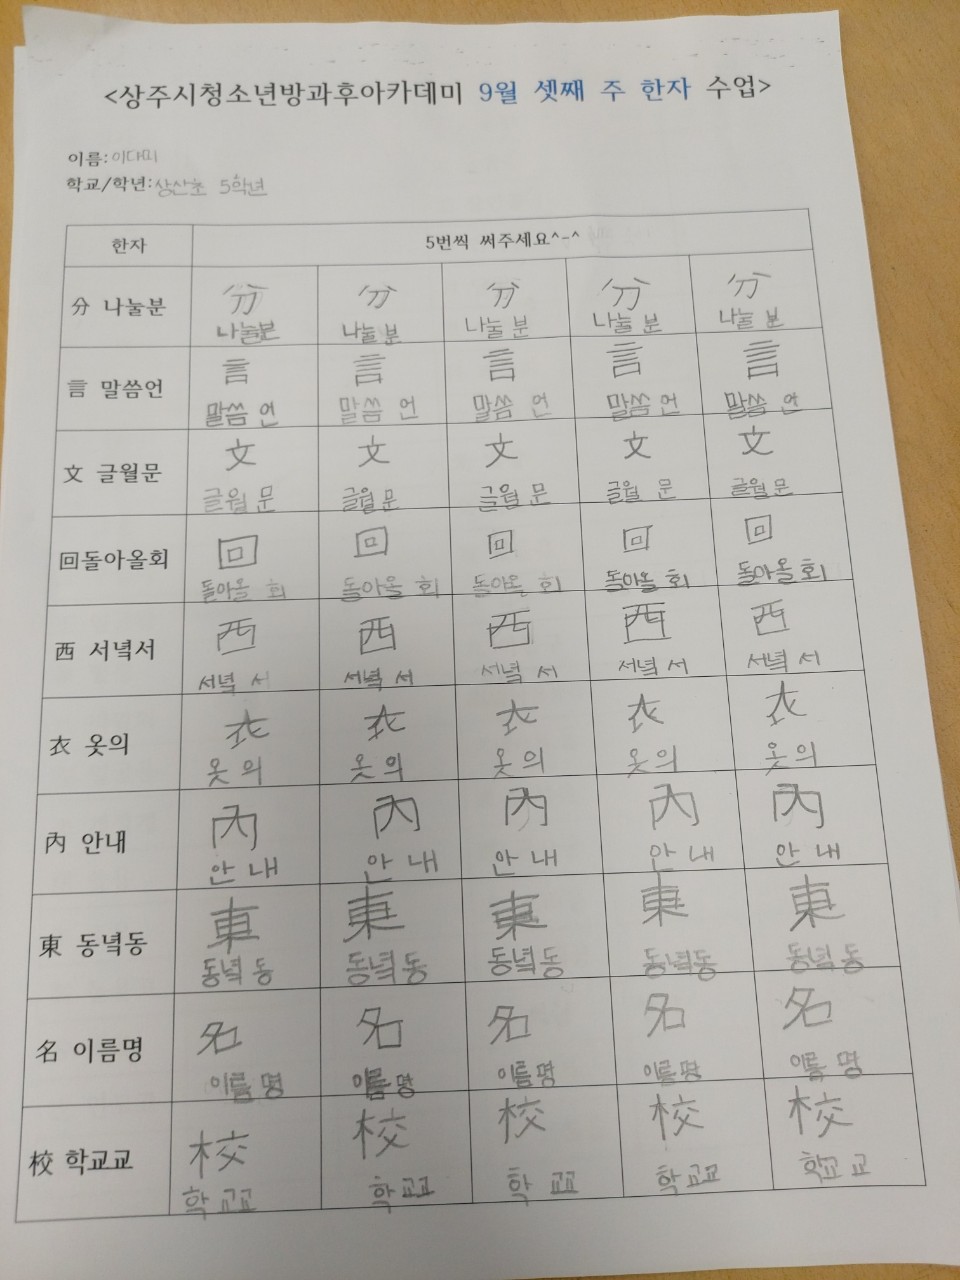 <상주시청소년방과후아카데미 9월 셋째 주 한자 수업>
이름:이다미
학교/학년:상산초 5학년
한자 5번씩 써주세요^-^
分 나눌분 分 分 分 分 分
나눌분 나눌 분 나눌 분 나눌 분 나눌 분
言 말씀언 言 言 言 言 言
말씀 언 말씀 언 말씀 언 말씀 언 말씀 언
文 글월문 文 文 文 文 文
글월 문 글월 문 글월 문 글월 문 글월 문
回돌아올회 回 回 回 回 回
돌아올 회 돌아올 회 돌아올 회 돌아올 회 돌아올 회
西 서녘서 西 西 西 西 西
서녘 서 서녘 서 서녘 서 서녘 서 서녘 서
衣 옷의 衣 衣 衣 衣 衣
옷 의 옷 의 옷 의 옷 의 옷 의
內 안내 內 內 內 內 內
안 내 안 내 안 내 안 내 안 내
東 동녘동 東 東 東 東 東
동녘 동 동녘동 동녘동 동녘동 동녘 동
名 이름명 名 名 名 名 名
이름 명 이름 명 이름 명 이름 명 이름 명
校 학교교 校 校 校 校 校
학 교교 학 교교 학 교교 학 교교 학교 교